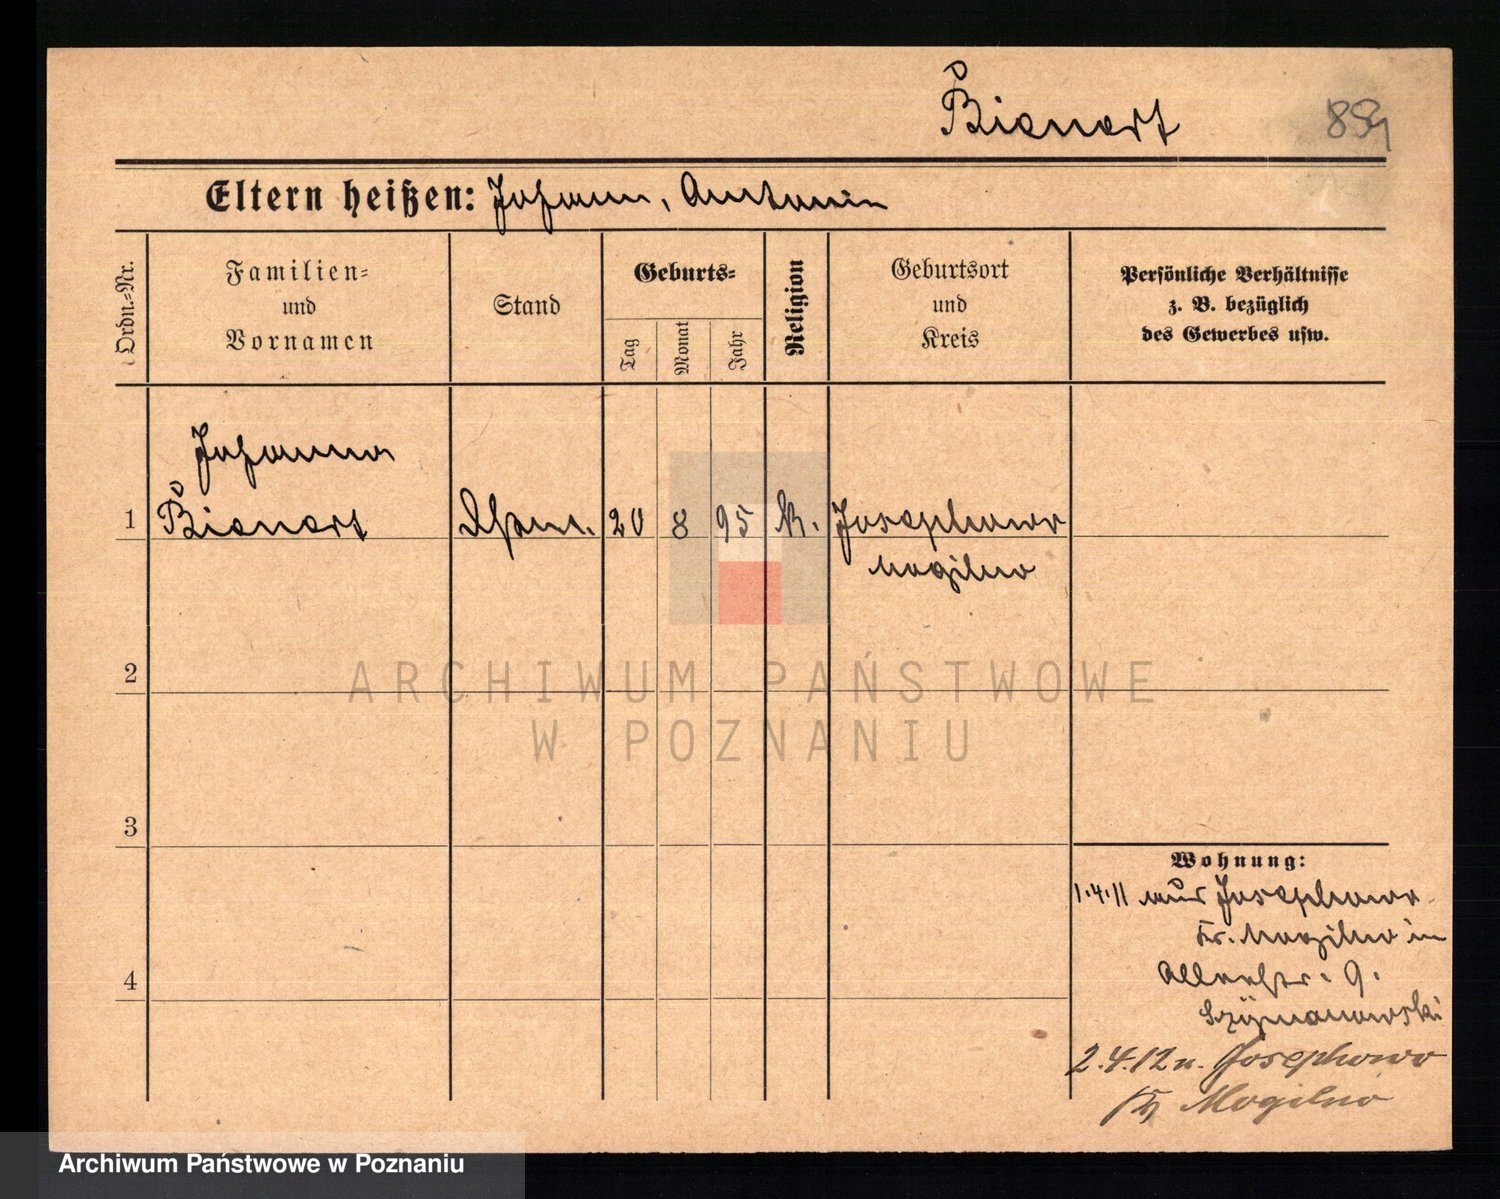 Bienert
89
Eltern heißen: Johann, Antonin
Ordn.=Nr.
Familien=
und
Vornamen
Stand
Geburts=
Tag
Monat
Jahr
Religion
Geburtsort
und
Kreis
Persönliche Verhältnisse
z. B. bezüglich
des Gewerbes usw.
Johanna
1 Bienert 20 8 95 k. Josephowo
Mogilno
2
ARCHIWUM PAŃSTWOWE
W POZNANIU
3
Wohnung:
1.4.11 aus Josephowo
Kr. Mogilno in
9.
4
Szÿmanowski
2.4.12 n. Josephowo
Kr Mogilno
Archiwum Państwowe w Poznaniu